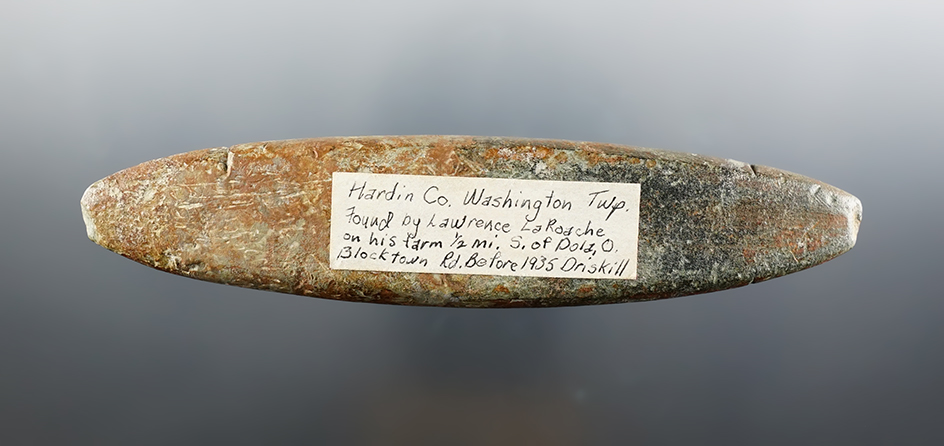 Hardin Co. Washington Twp.
Found by Lawrence LaRoache
on his farm 1/2 mi. S. of Dola, O.
Blocktown Rd. Before 1935 Driskill